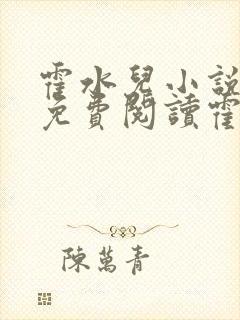 霍水兒小說
免費閱讀霍
陳萬青